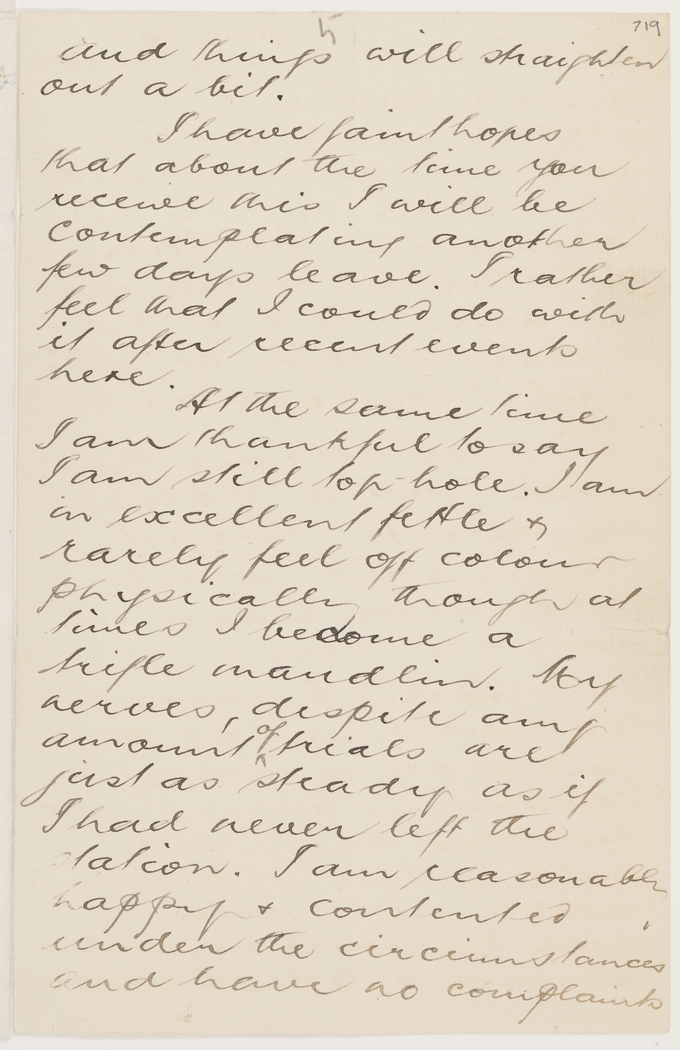 719
5
and things will straighten
out a bit.
I have faint hopes
that about the time you
receive this I will be
contemplating another
few days leave. I rather
feel that I could do with
it after recent events
here.
At the same time
I am thankful to say
I am still top-hole. I am
in excellent fettle &
rarely feel off colour
physically though at
times I become a
trifle maudlin. My
nerves, despite any
amount of trials are
just as steady as if
I had never left the
station. I am reasonably
happy & contented
under the circumstances
and have no complaints